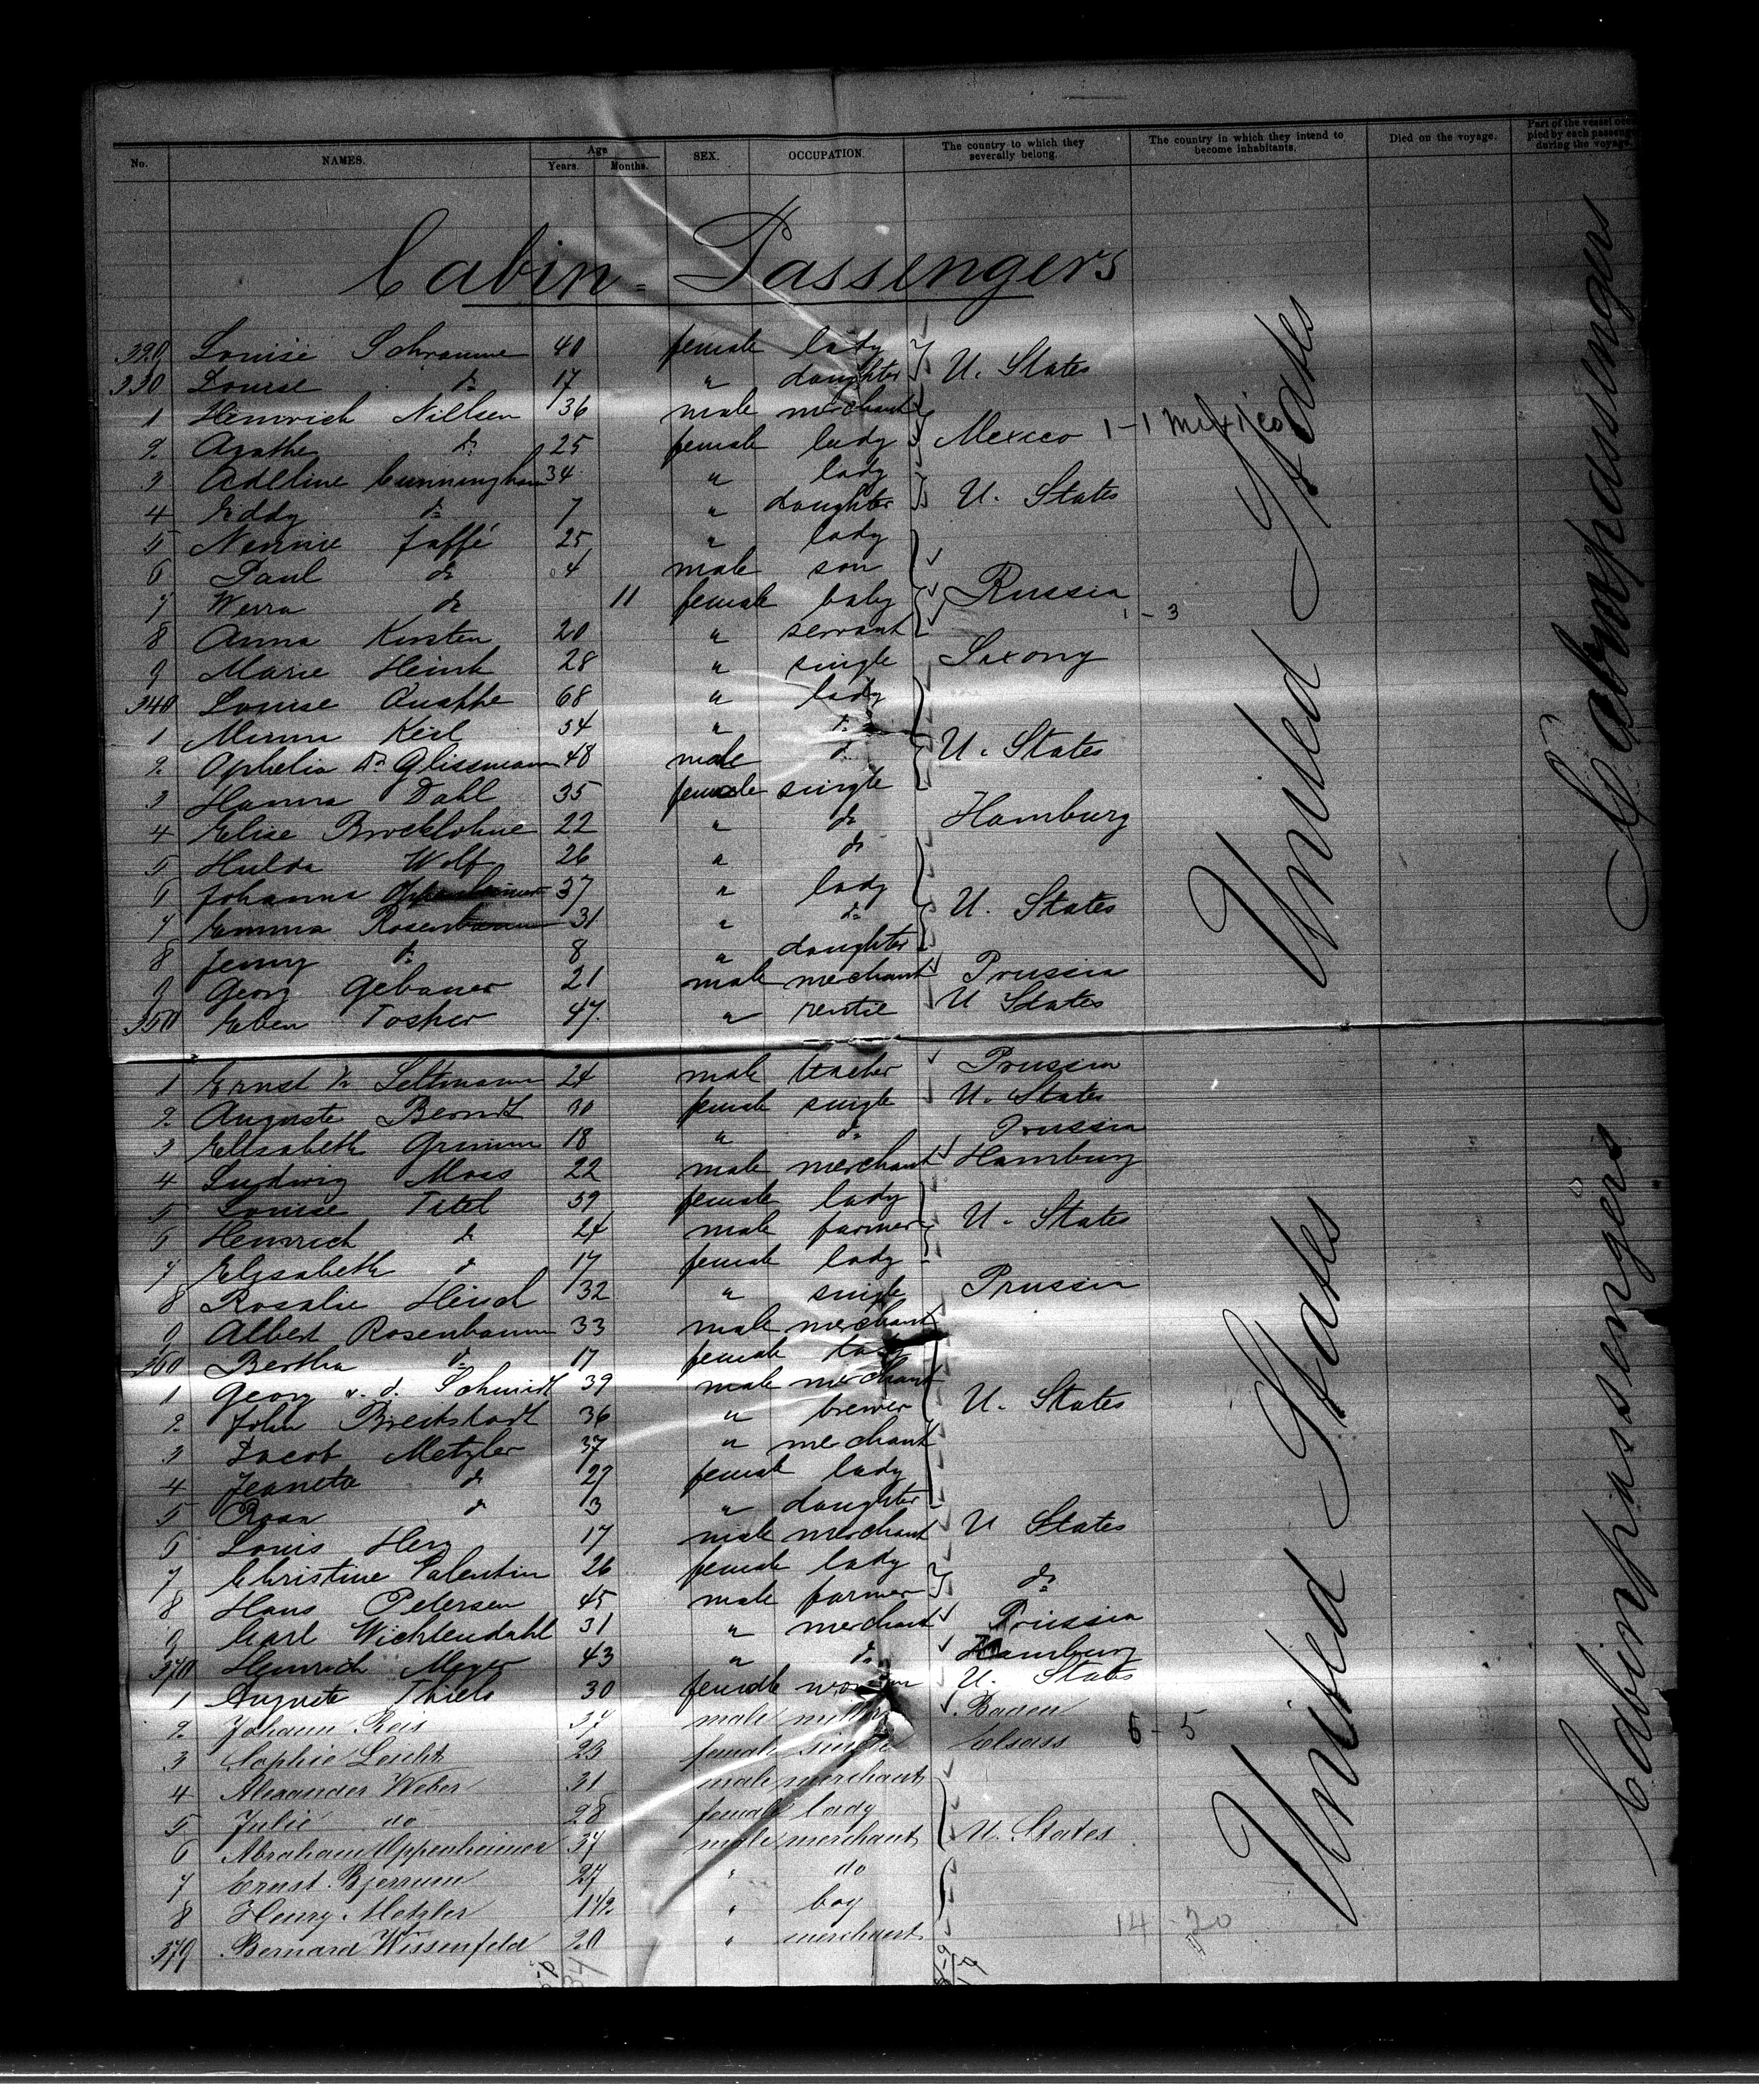 No. NAMES. Age Years. Months. SEX. OCCUPATION. The country to which they severally belong. The country in which they intend to become inhabitants. Died on the voyage. Part of the vessel occupied by each passenger during the voyage.
Cabin-Passengers
329 Louise Schramme 40 female lady
330 Louise do 17 " daughter U. States
1 Heinrich Nillsen 36 male merchant
2 Agathe do 25 female lady Mexico 1-1 Mexico
3 Adeline Cunningham 34 " lady
4 Eddy do 7 " daughter U. States
5 Nennie Jaffé 25 " lady
6 Paul do 4 male son
7 Werra do 11 female baby Russia
8 Anna Kirsten 20 " servant 1-3
9 Marie Heink 28 " single Saxony
340 Louise 68 " lady
1 Minna Keil 54 " do
2 Ophelia Dr Glissmann 48 male do U. States
3 Hanna Dahl 35 female single
4 Elise Brocklohne 22 " do Hamburg
5 Hulda Wolf 26 " do
6 Johanna Oppenheimer 37 " lady
7 Emma Rosenbaum 31 " do U. States
8 Jenny do 8 " daughter
9 Georg Gebauer 21 male merchant Prussia
350 Eben Tosher 47 " rentie U States
1 Ernst Seltmann 24 male teacher Prussia
2 Auguste Berndt 30 female single U. States
3 Elisabeth Grimm 18 " do Prussia
4 Ludwig Moss 22 male merchant Hamburg
5 Louise Titel 59 female lady
6 Heinrich do 24 male farmer U. States
7 Elisabeth do 17 female lady
8 Rosalie Heind 32 " single Prussia
9 Albert Rosenbaum 33 male merchant
360 Bertha do 17 female lady
1 Georg v. d. Schmidt 39 male merchant
2 John Breckstadt 36 " brewer U. States
3 Jacob Metzler 37 " merchant
4 Jeaneta do 27 female lady
5 Rosa do 3 " daughter
6 Louis Herz 17 male merchant U States
7 Christine Valentin 26 female lady
8 Hans Petersen 45 male farmer do
9 Carl Wichlendahl 31 " merchant Prussia
370 Heinrich Meyer 43 " do Hamburg
1 Auguste Thiele 30 female woman U. States
2 Johann Reis 37 male miller Baden
3 Sophie Leicht 23 female single Elsass 6-5
4 Alexander Weber 31 male merchant
5 Julie do 28 female lady
6 Abraham Oppenheimer 37 male merchant U. States
7 Ernst Bjerrum 27 " do
8 Henry Metzler 1 1/2 " boy
379 Bernard Wissenfeld 20 " merchant 14-20
United States
United States
Cabinpassengers
Cabinpassengers